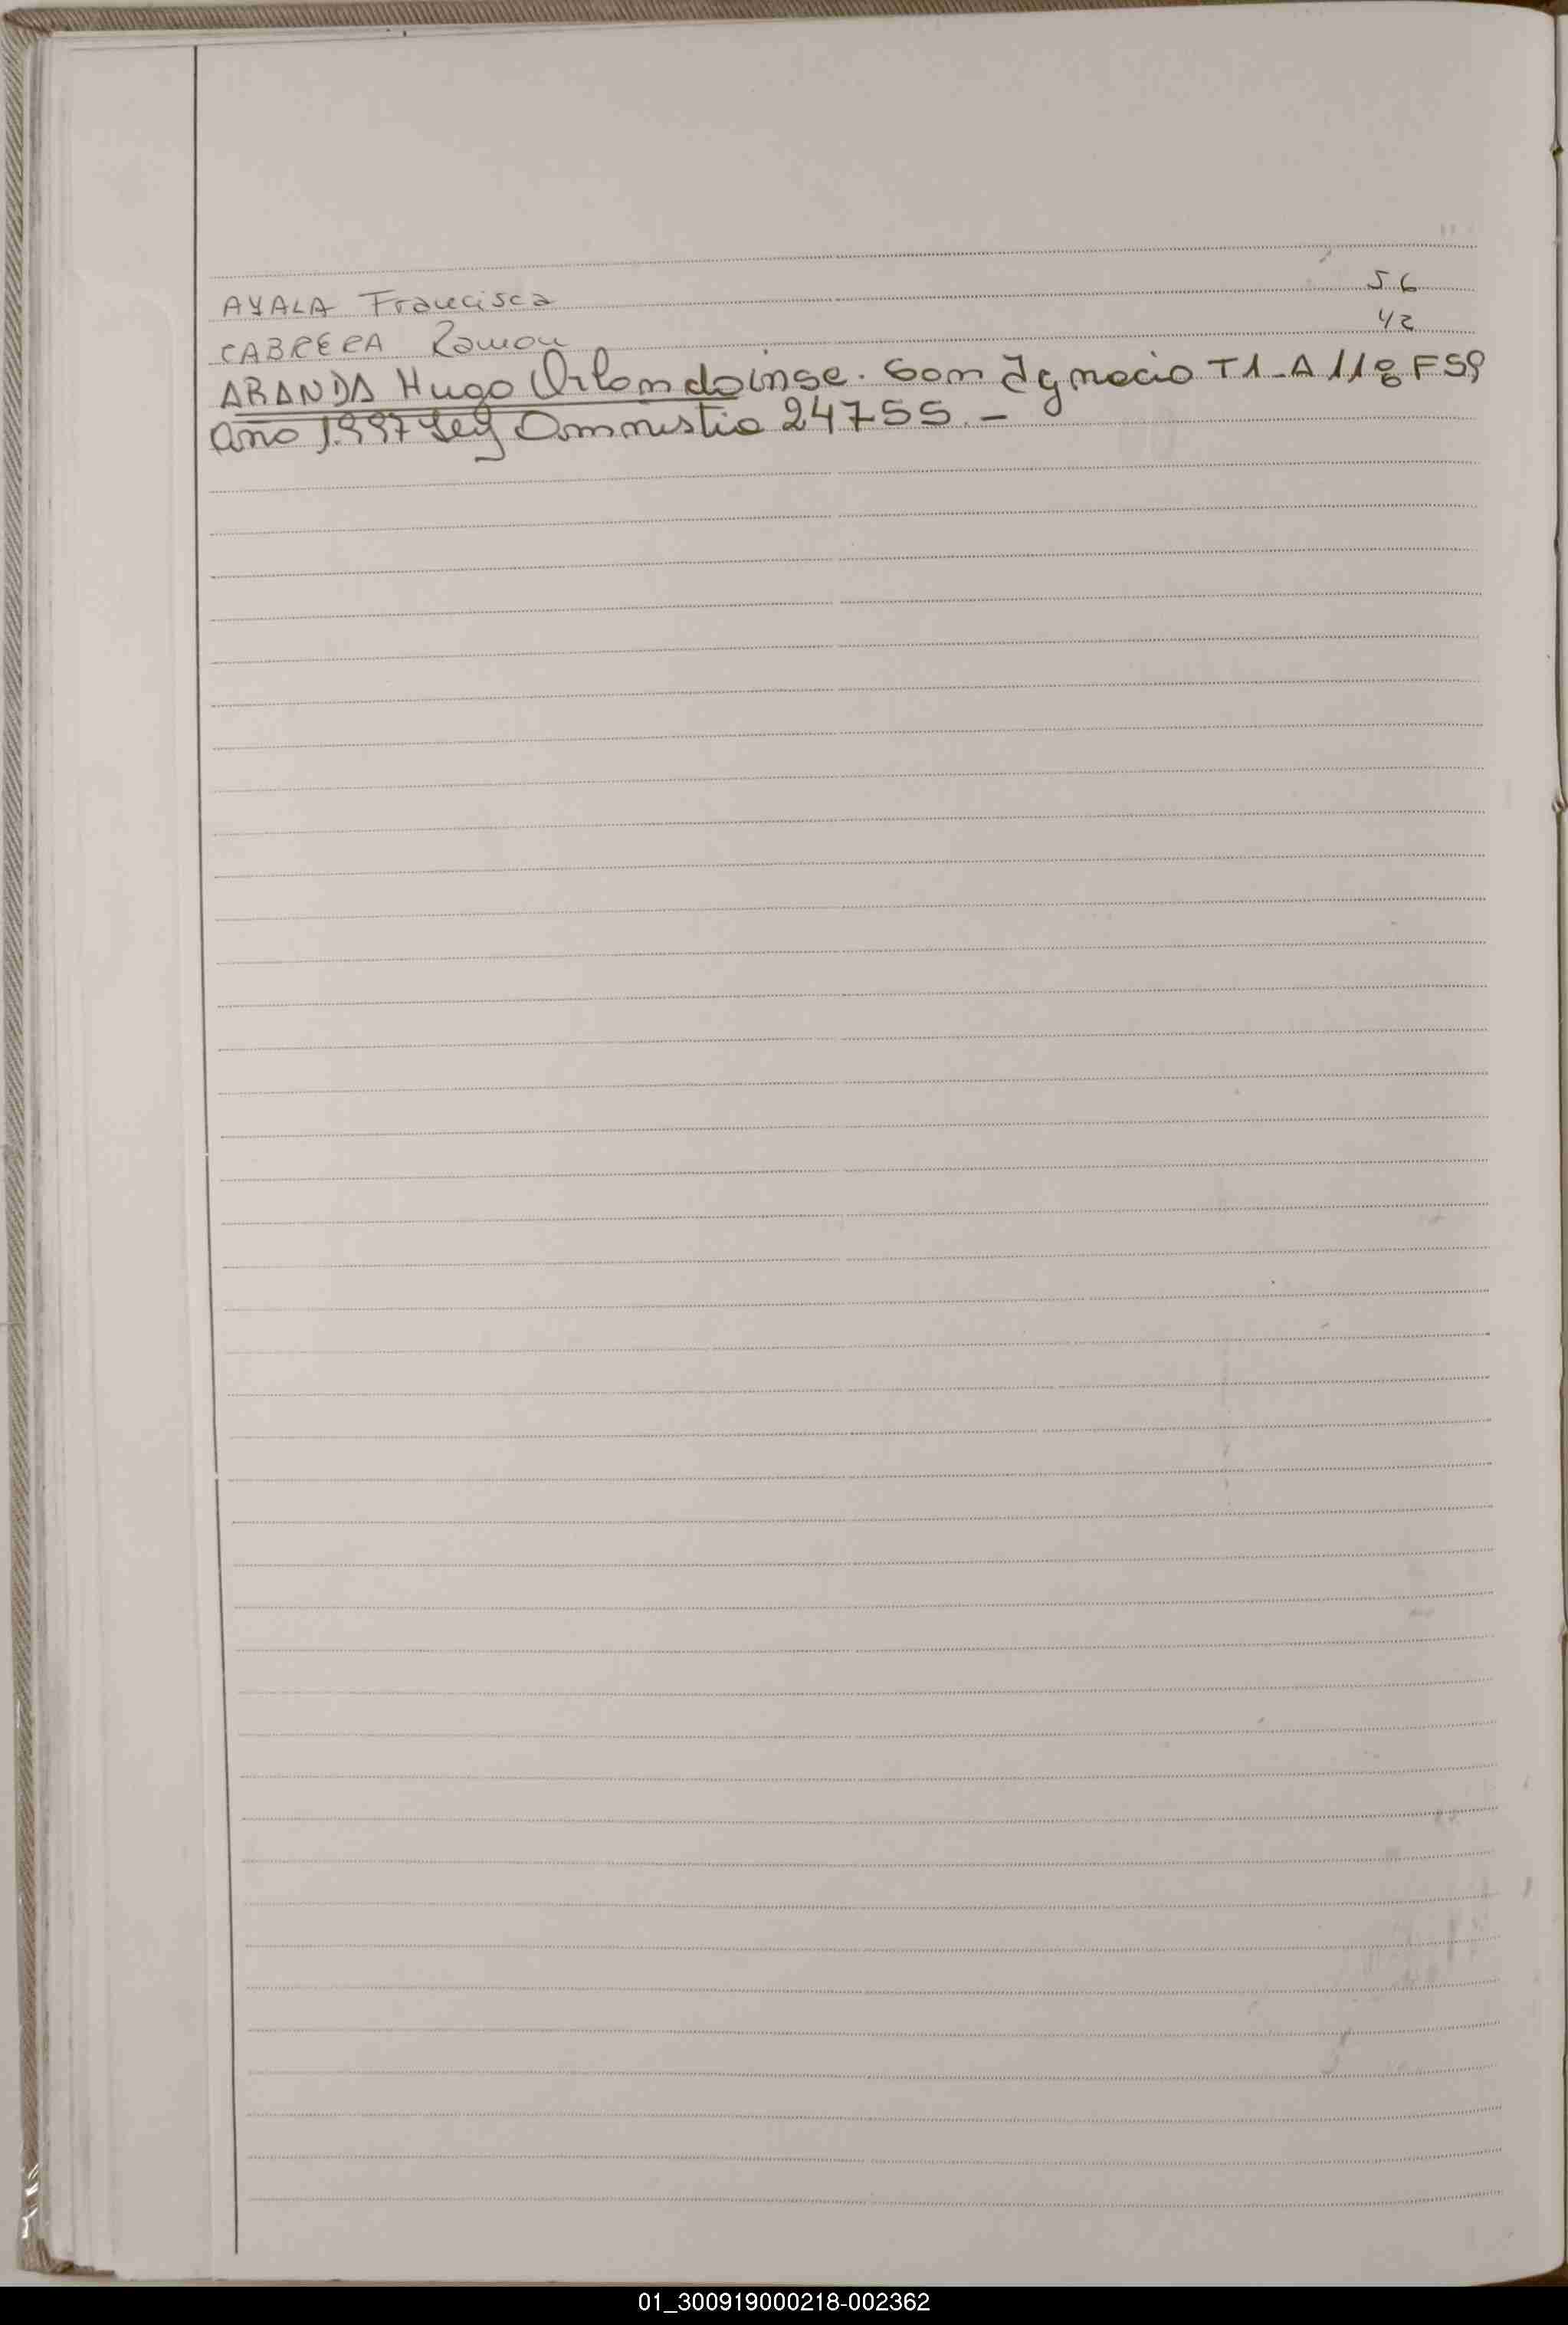 AYALA Francisca 56
CABRERA Ramon 42
ARANDA Hugo Orlando inse. San Ignacio T1-A 118 F 59
año 1.997 Ley Amnistia 24755. -
01_300919000218-002362